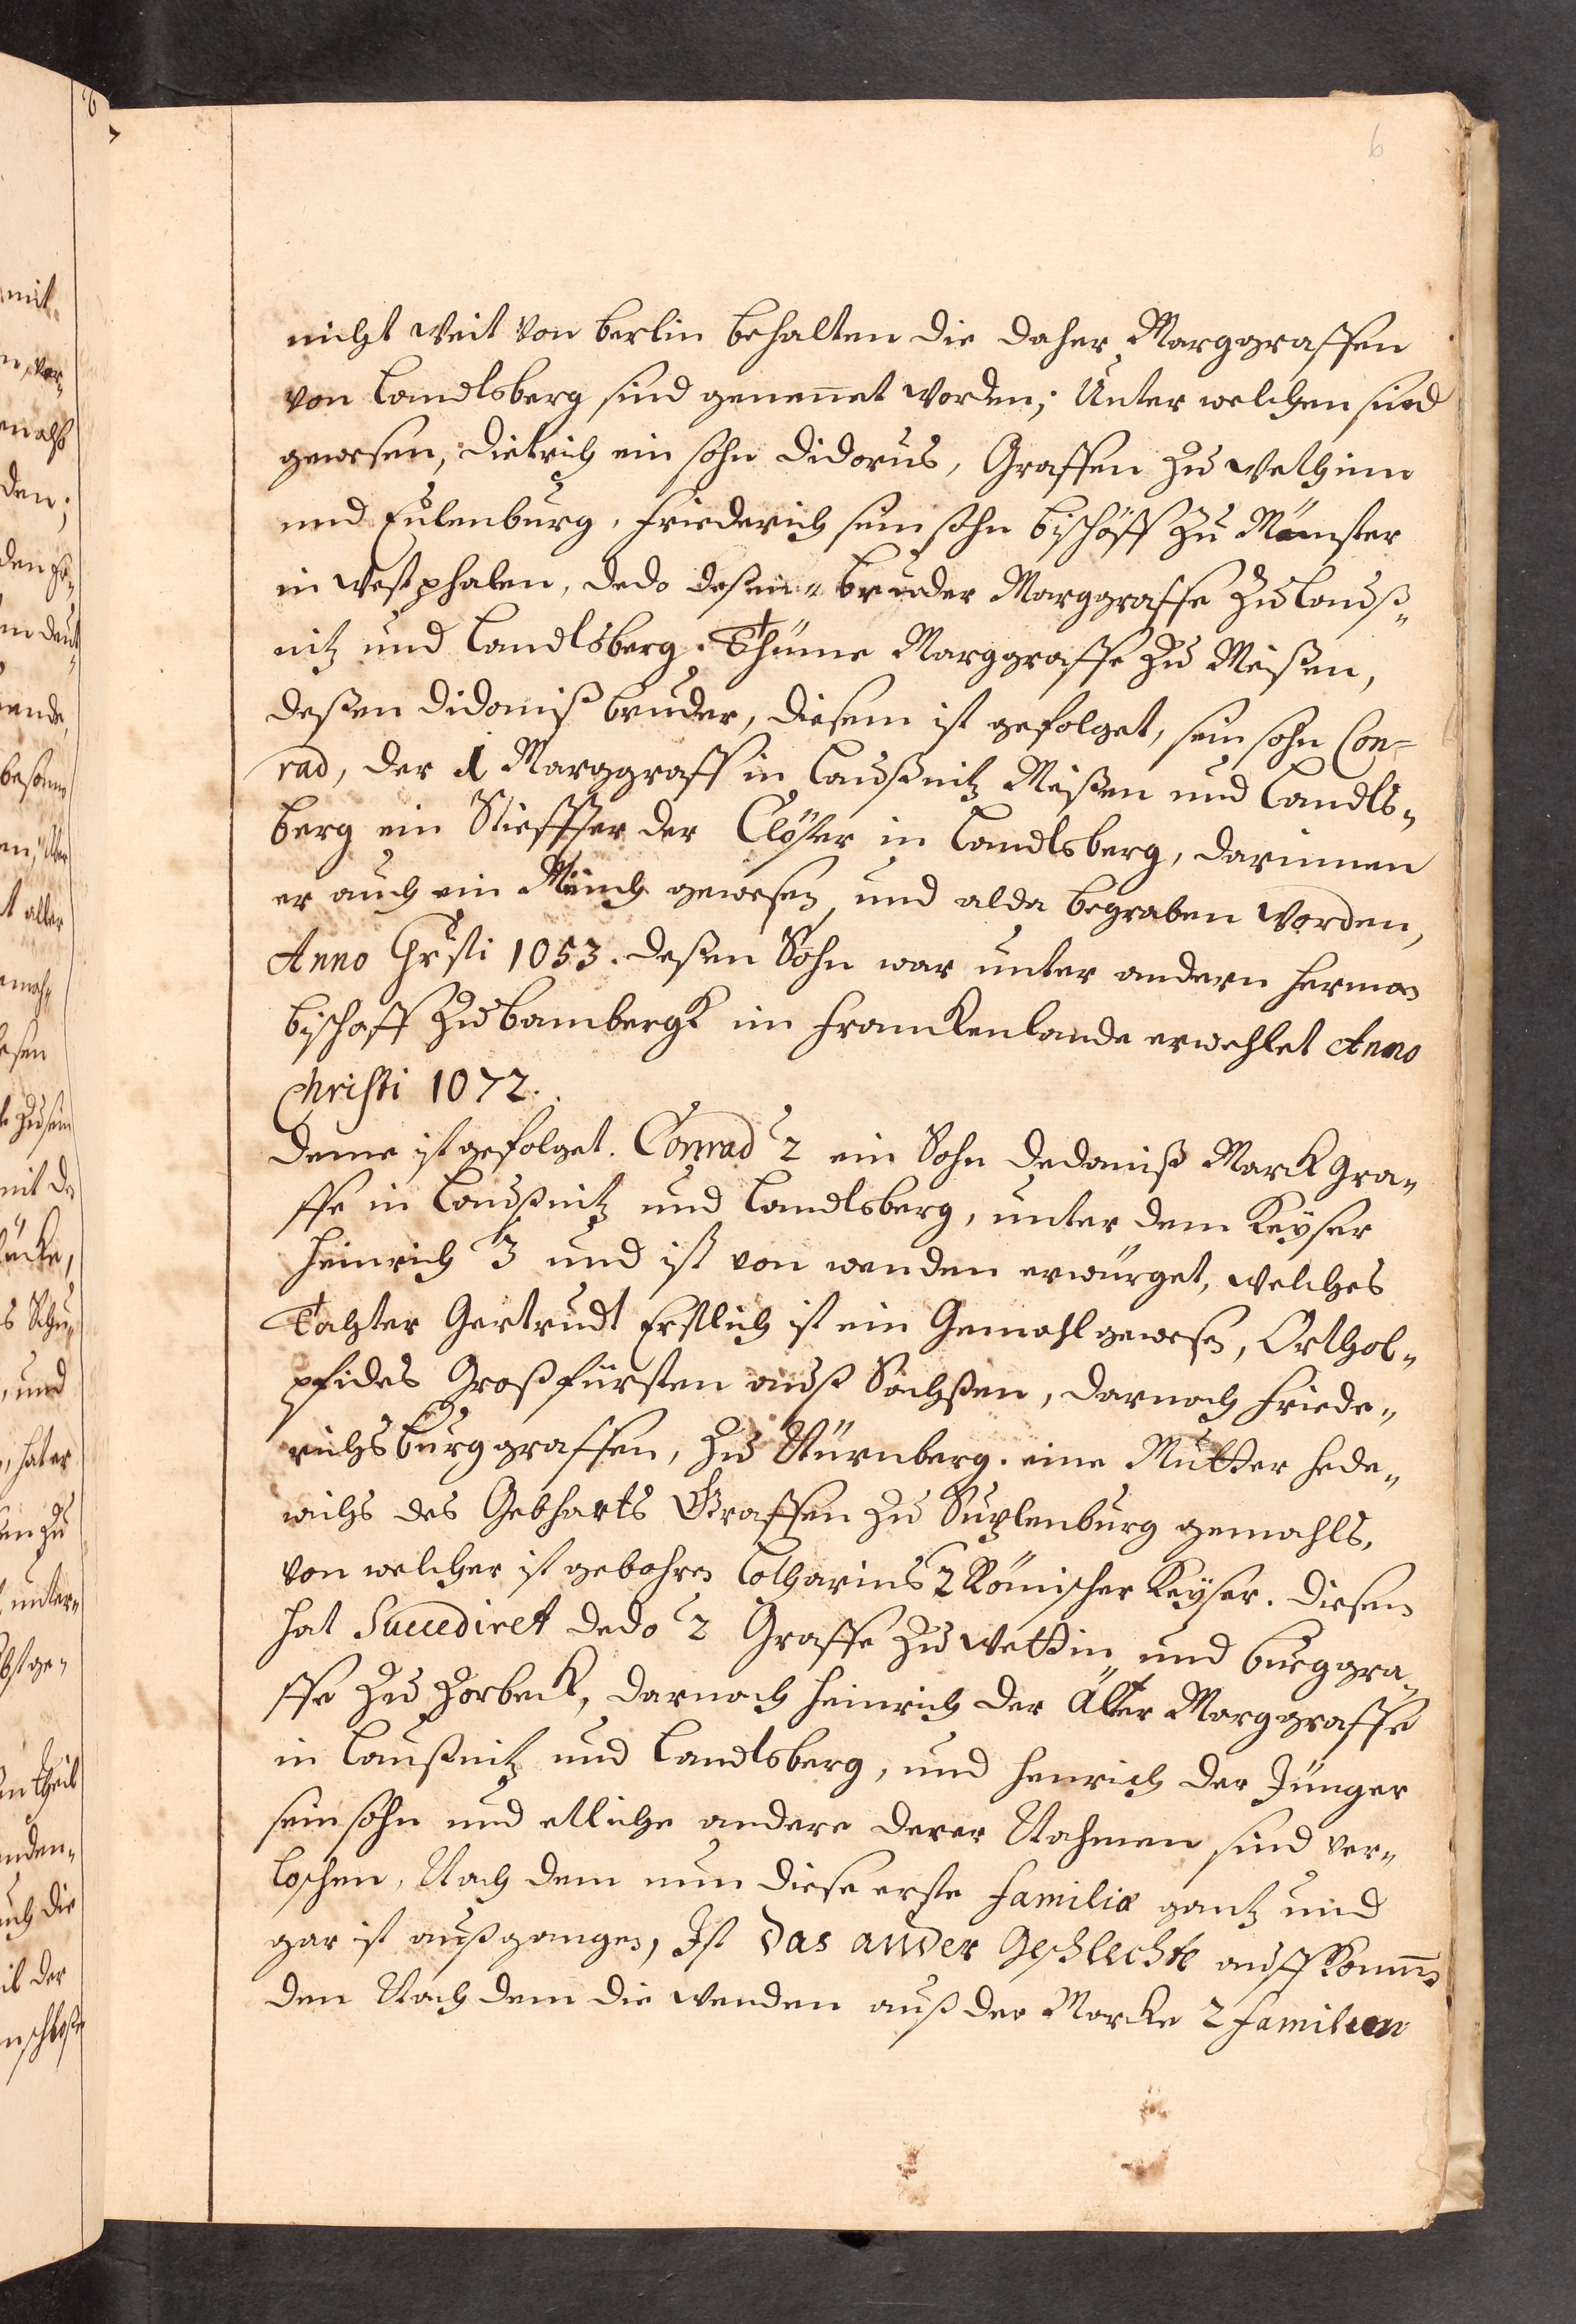 6
nicht weit von Berlin behalten die daher Marggraffen
von Landsberg sind genennet worden; Unter welchen sind
gewesen, Dietrich ein sohn Didorus, Graffen zu Wethinn
und Eulenburg, Friederich sein sohn Bischöff zu Münster
in Westphalen, Dedo deßen Bruder Marggraffe zu Lauß„
nitz und Landlsberg. Thümo Marggraffe zu Meißen,
deßen Didoniß bruder, diesem ist gefolget, sein sohn Con=
rad, der 1 Marggraff in Laußnitz Meißen und Landls„
berg ein Stieffter der Clöster in Landlsberg, darinnen
er auch ein Münch gewesen, und alda begraben worden,
Anno Christi 1053. deßen Sohn war unter andern Herman
Bischoff zu Bambergk im Franckenlande erwehlet Anno
Christi 1072.
Deme ist gefolget. Conrad 2 ein Sohn Dedoniß Marck gra„
ffe in Laußnitz und Landlsberg, unter dem Keyser
Heinrich 3 und ist von wenden erwürget, welches
Tochter Gertrudt Erstlich ist ein Gemahl gewesen, Orthol„
pfides Großfürsten auß Sachßen, darnach Friede„
richs Burggraffen, zu Nürnberg. eine Mutter Hede„
wichs des Gebharts Graffen zu Suplenburg gemahls,
von welcher ist gebohren Lotharius 2 Römischer Keyser. diesen
hat Succediret Dedo 2 Graffe zu Wettin und Burggra„
ffe zu Zorbeck, darnach Heinrich der Älter Marggraffe
in Laußnitz und Landlsberg, und Henrich der Jünger
sein sohn und etliche andere derer Nahmen sind ver„
loschen, Nach dem nun diese erste familia gantz und
gar ist außgangen, Ist das ander Geschlechte auffkommen
den Nach dem die wenden auß der Marcke 2 familien